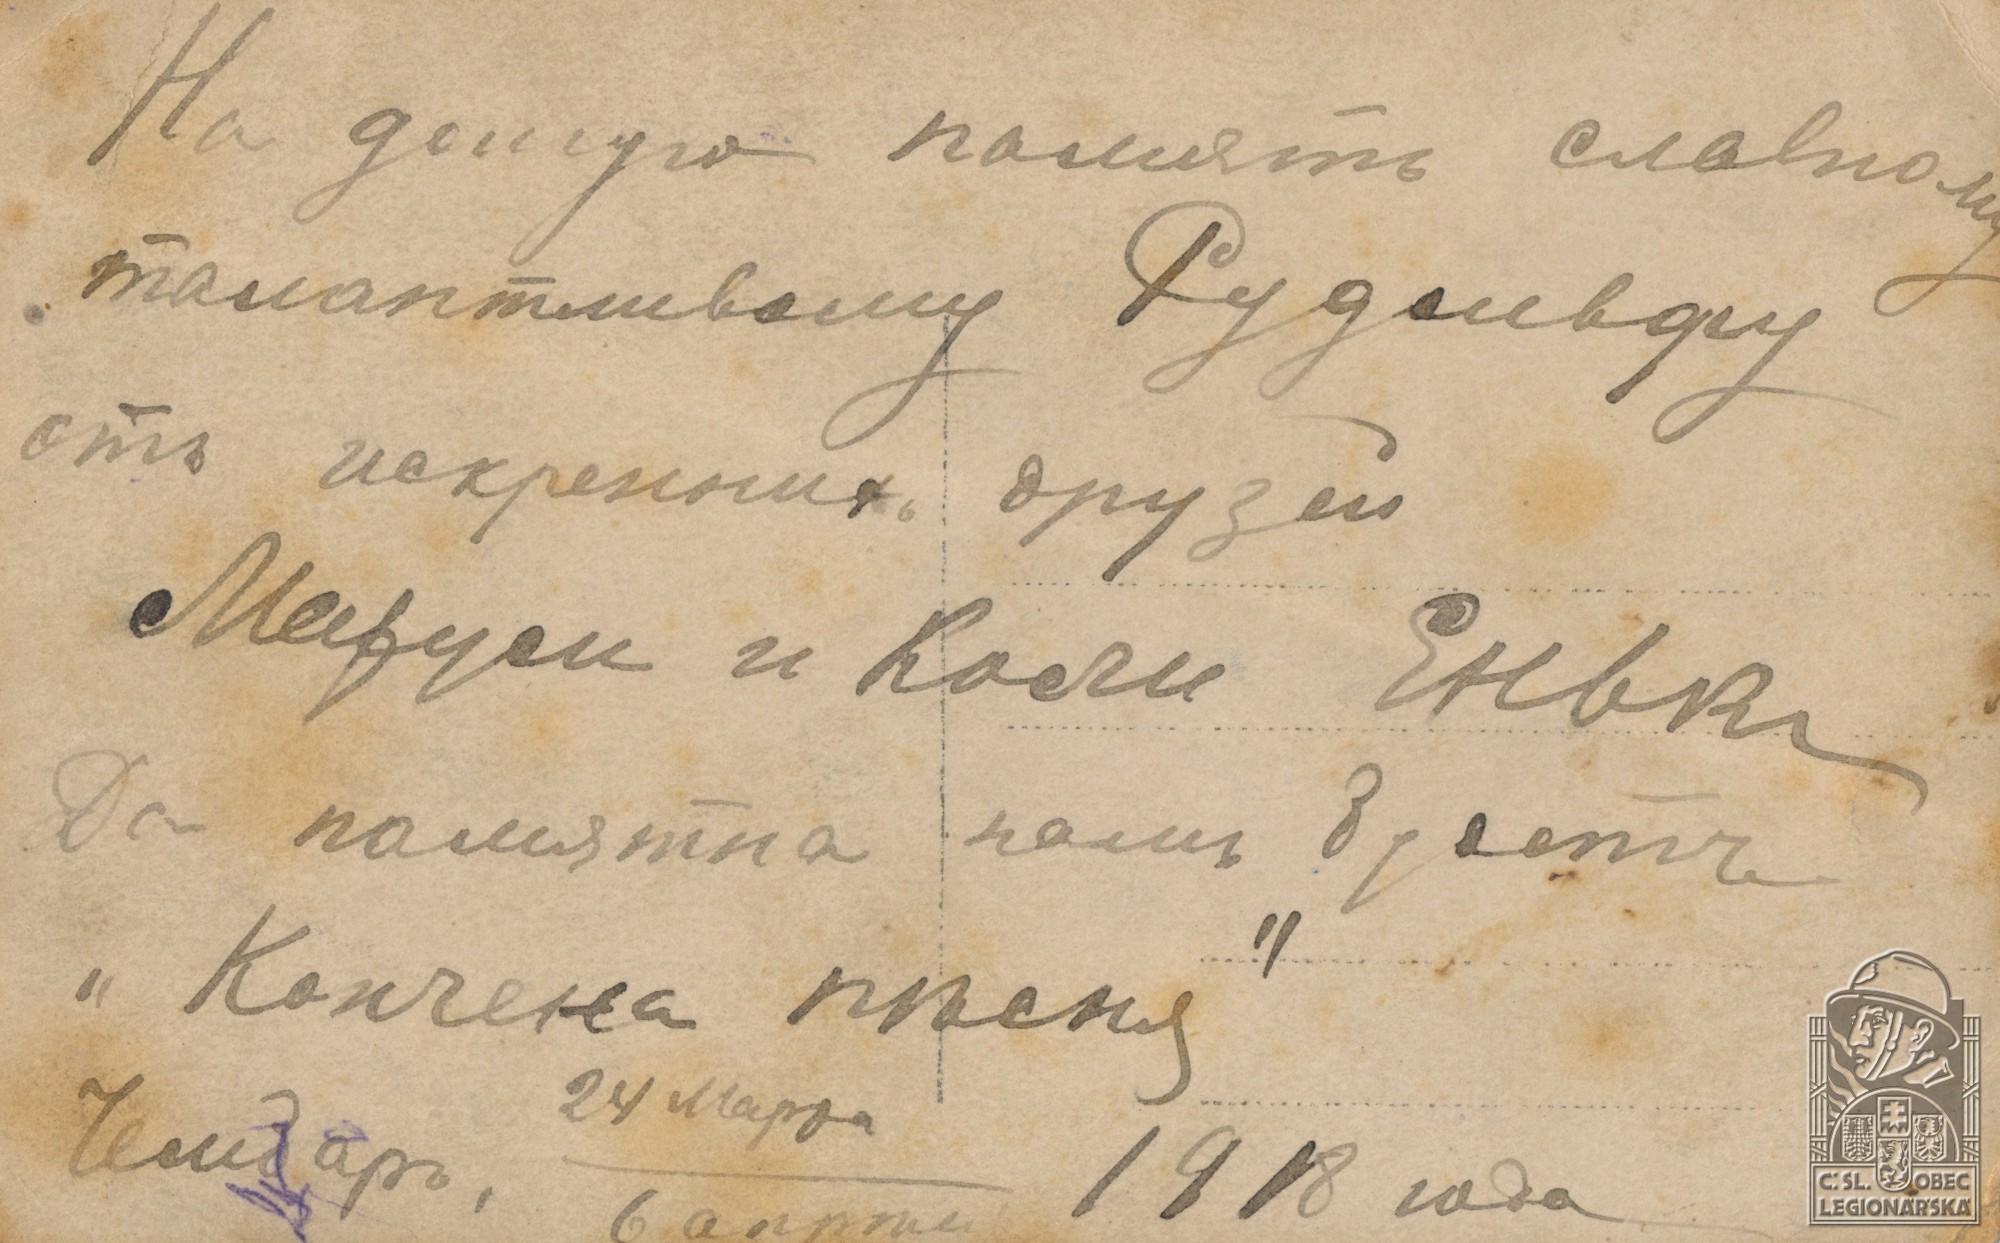 На долгую память славному
талантливому Рудольфу
отъ искреннихъ друзей
Маруси и Коли Енько
Да памятна намъ будетъ
"Кончена пѣсня"
24 Марта
1918 года
6 апрѣля
Č.SL. OBEC
LEGIONÁŘSKÁ